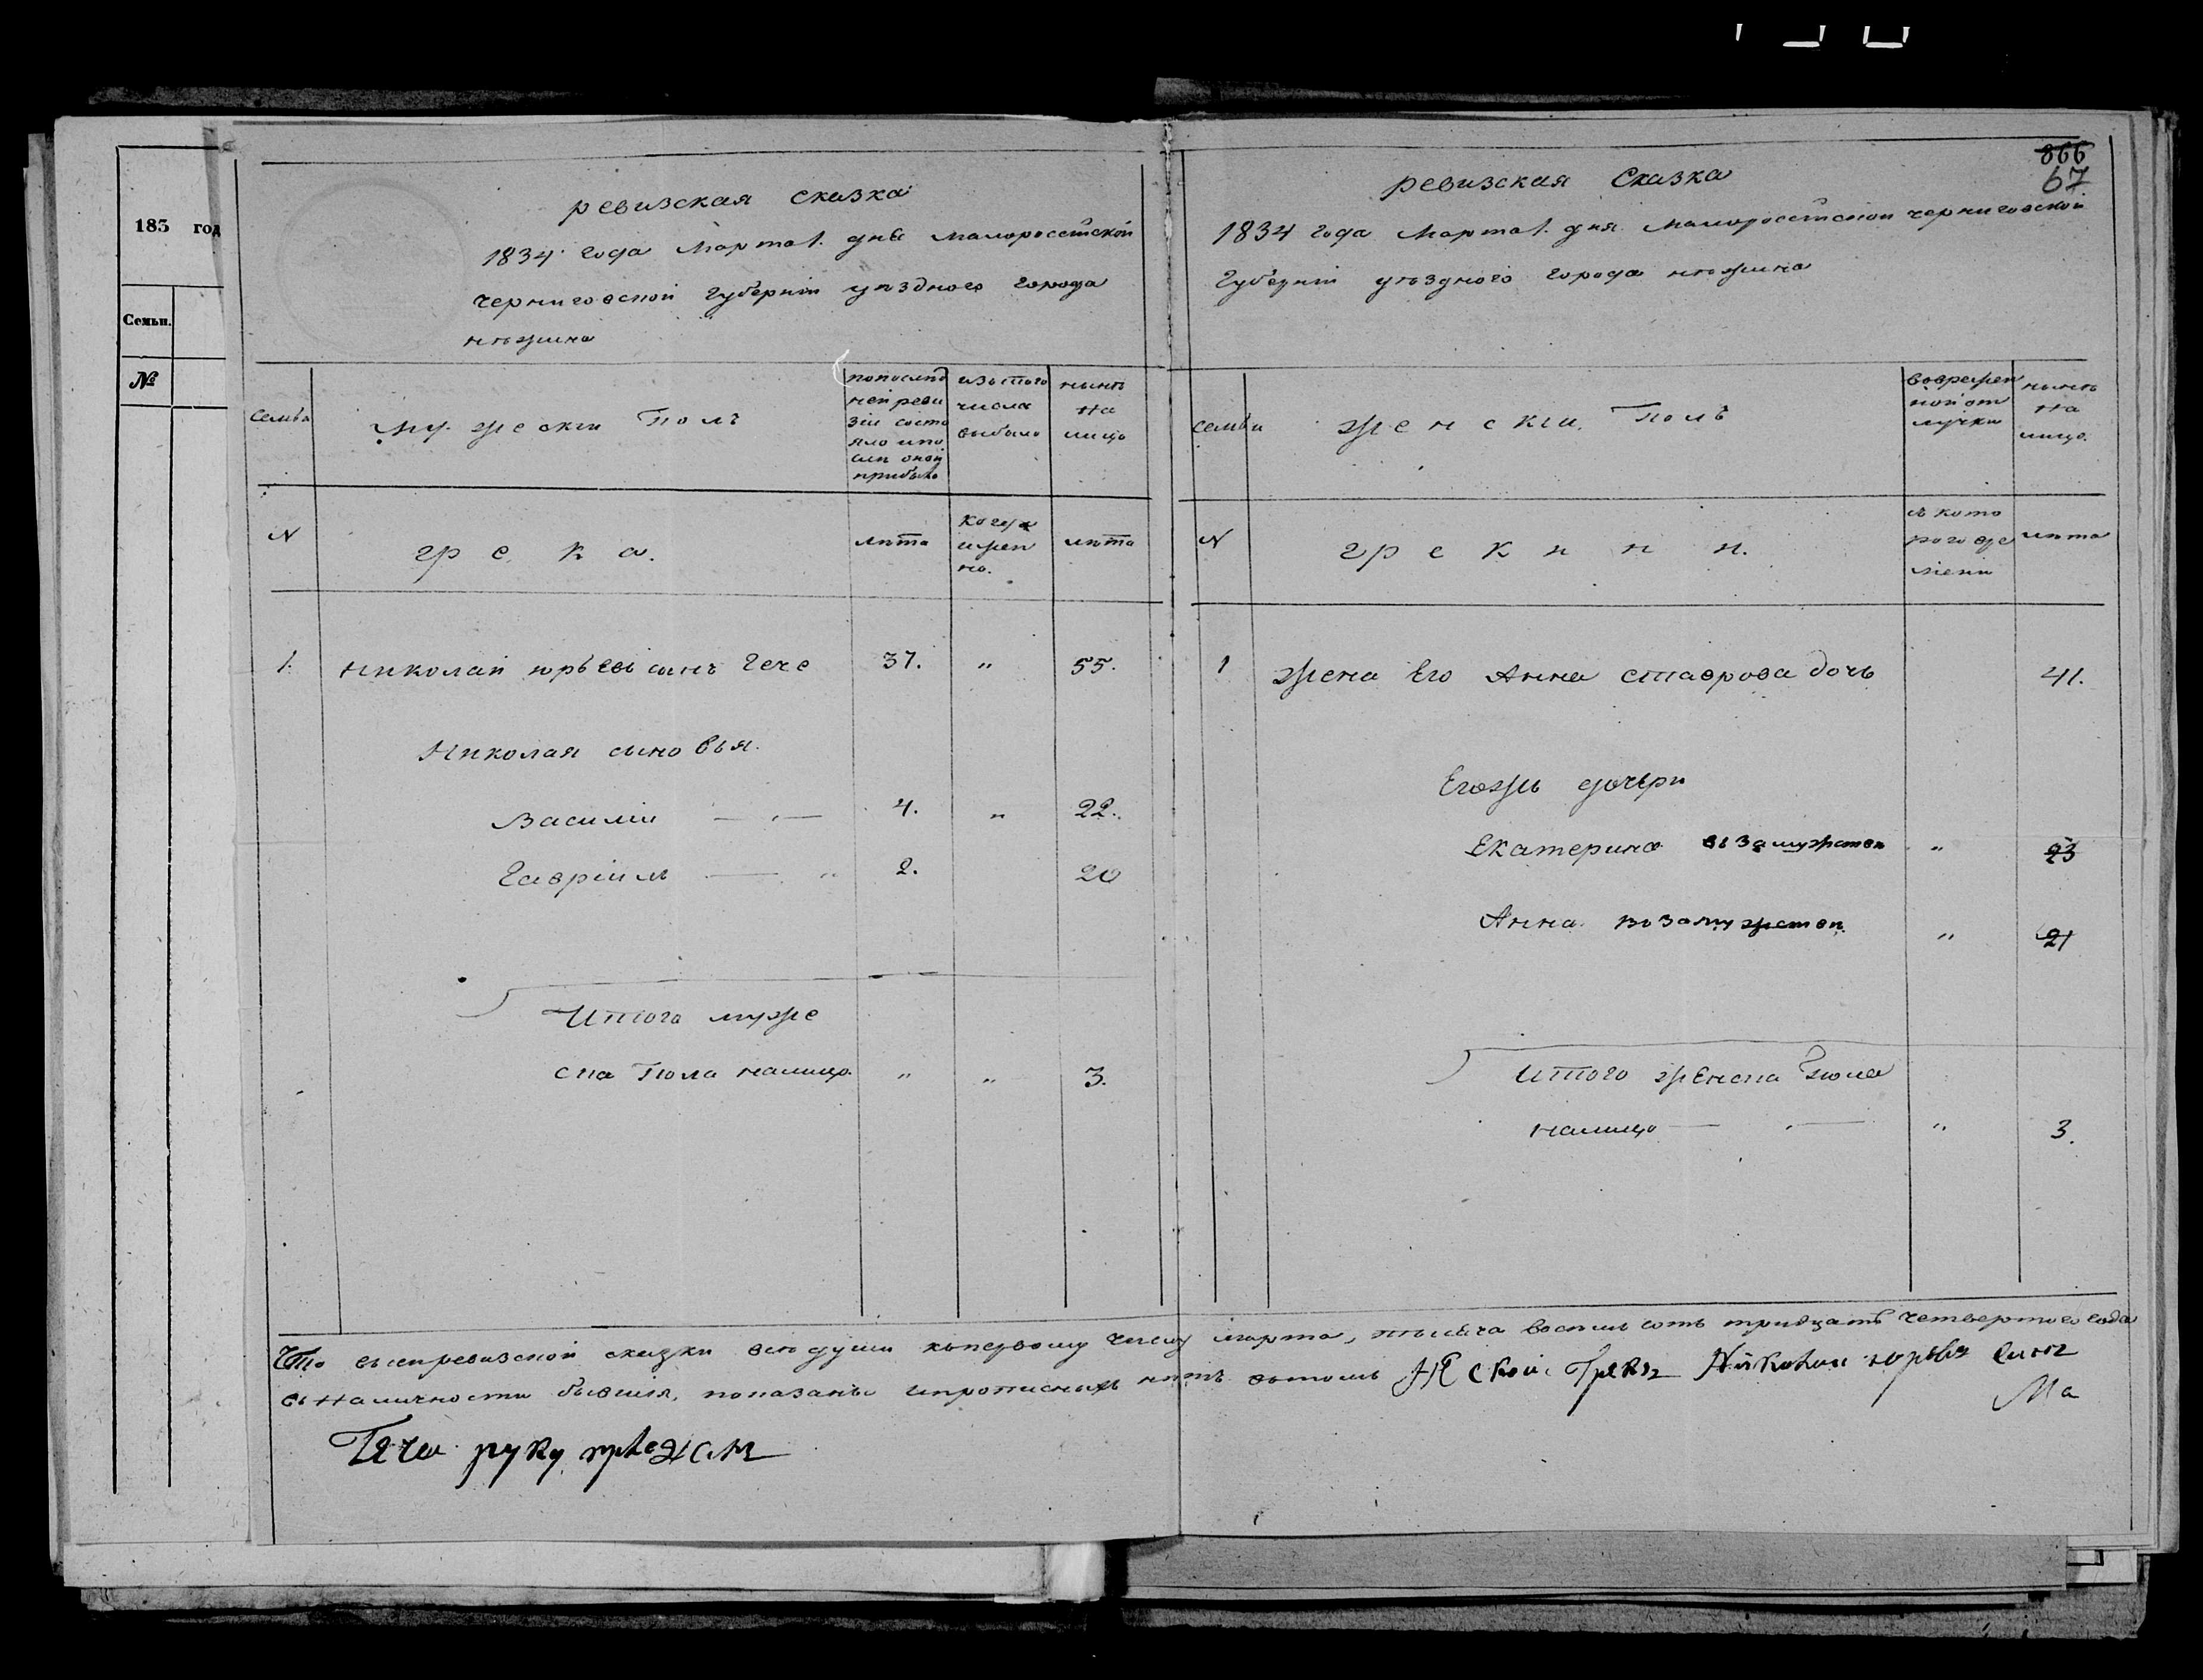 183 год
Семьи.
№
ревизская сказка
1834 года Марта 1. дня малороссійской
черниговской губерніи уѣзднаго города
нѣжина
семья
мужески Полъ
попослѣд
ней реви
зіи состо
яло ипо
слѣ оной
прибыло
изътого
числа
выбыло
нынѣ
на
лицо
N
грека.
лѣта
когда
имен
но.
лѣта
1. Николай юрьевъ сынъ Гече 37. " 55.
Николая сыновья.
Василіи 4. " 22.
Гавріилъ " 2. 20
Итого муже
ска Пола налицо " " 3.
866
67
ревизская Сказка
1834 года Марта 1. дня малороссійской черниговской
Губерніи уѣзднаго города нѣжина
семья
женски Полъ
вовремен
ной от
лучки
нынѣ
на
лицо.
N
грекини.
съ кото
раго вре
мени
лѣта
1 Жена Его Анна ставрова дочь 41.
Егожъ дочери
Екатерина въ замужствѣ " 23
Анна въ замужствѣ " 21
Итого женска Пола
налицо " 3.
Что въ сейревизской сказки всѣ души кпервому числу марта, тысяча восемь сотъ тридцать четвертого года
въ наличности бывшія, показаны ипрописныхъ нѣтъ вътомъ Неской Грекъ Николаи юрьевъ синъ
Ма
Гече руку